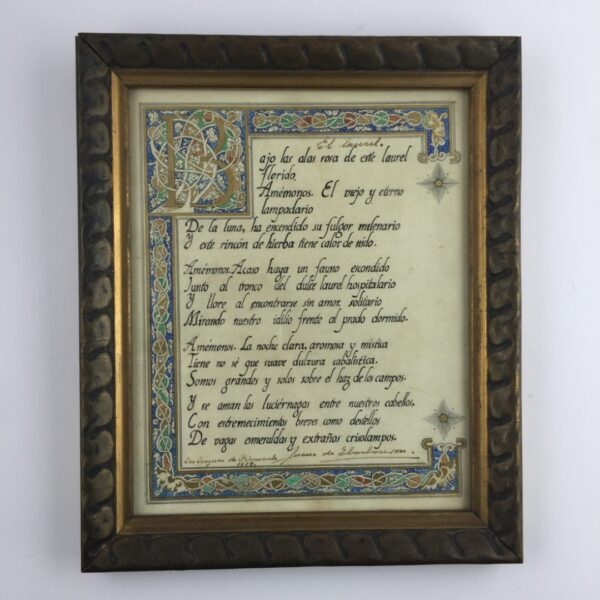 El laurel.
Bajo las alas rosa de este laurel
florido,
Amémonos. El viejo y eterno
lampadario
De la luna, ha encendido su fulgor milenario
Y este rincón de hierba tiene calor de nido.
Amémonos. Acaso haya un fauno escondido
Junto al tronco del dulce laurel hospitalario
Y llore al encontrarse sin amor, solitario
Mirando nuestro idilio frente al prado dormido.
Amémonos. La noche clara, aromosa y mística
Tiene no sé que suave dulzura cabalística.
Somos grandes y solos sobre el haz de los campos.
Y se aman las luciérnagas entre nuestros cabellos,
Con estremecimientos breves como destellos
De vagas esmeraldas y extraños crisolampos.
Las Lenguas de Diamante Juana de Ibarbourou.